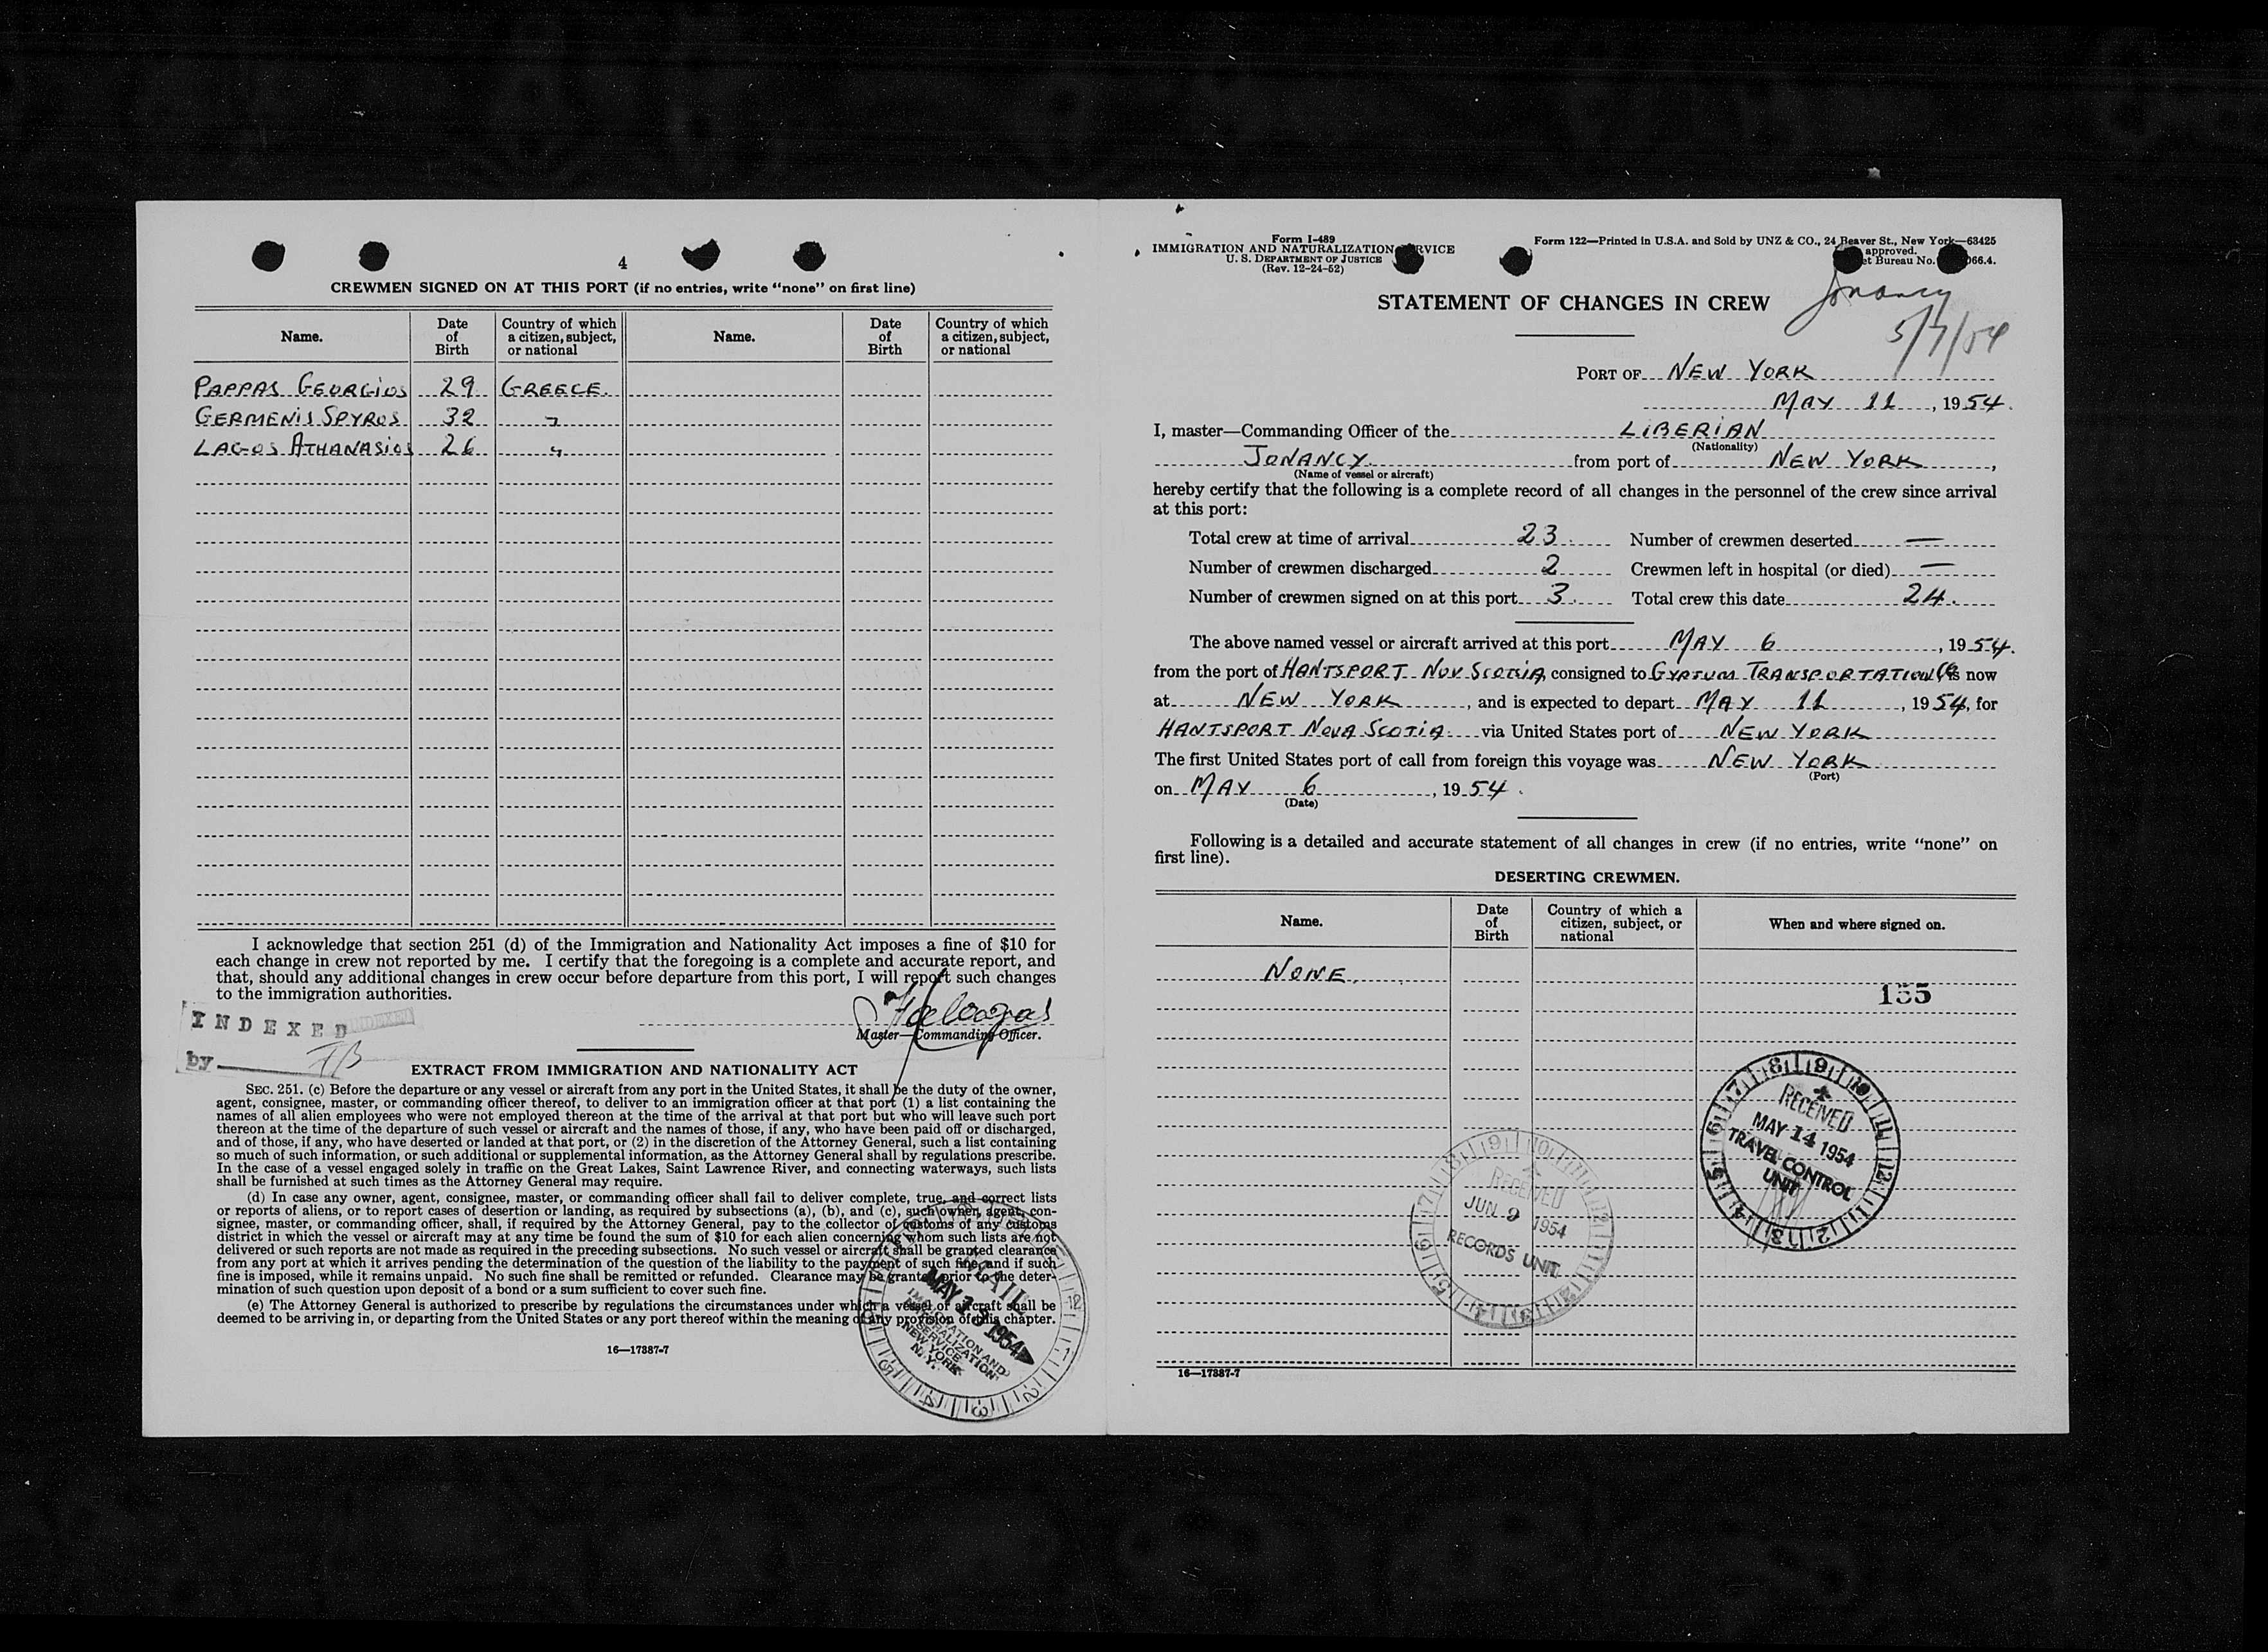 4
CREWMEN SIGNED ON AT THIS PORT (if no entries, write “none” on first line)
Name. Date of Birth Country of which a citizen, subject, or national Name. Date of Birth Country of which a citizen, subject, or national
PAPPAS GEORGIOS 29 GREECE.
GERMENIS SPYROS 32 "
LAGOS ATHANASIOS 26 "
I acknowledge that section 251 (d) of the Immigration and Nationality Act imposes a fine of $10 for
each change in crew not reported by me. I certify that the foregoing is a complete and accurate report, and
that, should any additional changes in crew occur before departure from this port, I will report such changes
to the immigration authorities.
INDEXED
by
Master—Commanding Officer.
EXTRACT FROM IMMIGRATION AND NATIONALITY ACT
SEC. 251. (c) Before the departure or any vessel or aircraft from any port in the United States, it shall be the duty of the owner,
agent, consignee, master, or commanding officer thereof, to deliver to an immigration officer at that port (1) a list containing the
names of all alien employees who were not employed thereon at the time of the arrival at that port but who will leave such port
thereon at the time of the departure of such vessel or aircraft and the names of those, if any, who have been paid off or discharged,
and of those, if any, who have deserted or landed at that port, or (2) in the discretion of the Attorney General, such a list containing
so much of such information, or such additional or supplemental information, as the Attorney General shall by regulations prescribe.
In the case of a vessel engaged solely in traffic on the Great Lakes, Saint Lawrence River, and connecting waterways, such lists
shall be furnished at such times as the Attorney General may require.
(d) In case any owner, agent, consignee, master, or commanding officer shall fail to deliver complete, true, and correct lists
or reports of aliens, or to report cases of desertion or landing, as required by subsections (a), (b), and (c), such owner, agent, con-
signee, master, or commanding officer, shall, if required by the Attorney General, pay to the collector of customs of any customs
district in which the vessel or aircraft may at any time be found the sum of $10 for each alien concerning whom such lists are not
delivered or such reports are not made as required in the preceding subsections. No such vessel or aircraft shall be granted clearance
from any port at which it arrives pending the determination of the question of the liability to the payment of such fine, and if such
fine is imposed, while it remains unpaid. No such fine shall be remitted or refunded. Clearance may be granted prior to the deter-
mination of such question upon deposit of a bond or a sum sufficient to cover such fine.
(e) The Attorney General is authorized to prescribe by regulations the circumstances under which a vessel or aircraft shall be
deemed to be arriving in, or departing from the United States or any port thereof within the meaning of any provision of this chapter.
MAIL
MAY 13 1954
IMMIGRATION AND
NATURALIZATION
SERVICE
NEW YORK
N.Y.
16—17387-7
Form I-489
IMMIGRATION AND NATURALIZATION SERVICE
U. S. DEPARTMENT OF JUSTICE
(Rev. 12-24-52)
Form 122—Printed in U.S.A. and Sold by UNZ & CO., 24 Beaver St., New York—63425
approved.
Bureau No. 066.4.
Jonancy
5/7/54
STATEMENT OF CHANGES IN CREW
PORT OF NEW YORK
MAY 11, 1954.
I, master—Commanding Officer of the LIBERIAN
(Nationality)
JONANCY. from port of NEW YORK,
(Name of vessel or aircraft)
hereby certify that the following is a complete record of all changes in the personnel of the crew since arrival
at this port:
Total crew at time of arrival 23. Number of crewmen deserted —
Number of crewmen discharged 2 Crewmen left in hospital (or died) —
Number of crewmen signed on at this port 3. Total crew this date 24.
The above named vessel or aircraft arrived at this port MAY 6, 1954.
from the port of HANTSPORT NOV SCOTIA, consigned to GYPSUM TRANSPORTATION Co is now
at NEW YORK, and is expected to depart MAY 11, 1954, for
HANTSPORT NOVA SCOTIA. via United States port of NEW YORK
The first United States port of call from foreign this voyage was NEW YORK
(Port)
on MAY 6, 1954.
(Date)
Following is a detailed and accurate statement of all changes in crew (if no entries, write “none” on
first line).
DESERTING CREWMEN.
Name. Date of Birth Country of which a citizen, subject, or national When and where signed on.
NONE.
155
RECEIVED
MAY 14 1954
TRAVEL CONTROL
UNIT
RECEIVED
JUN 9 1954
RECORDS UNIT
16—17387-7